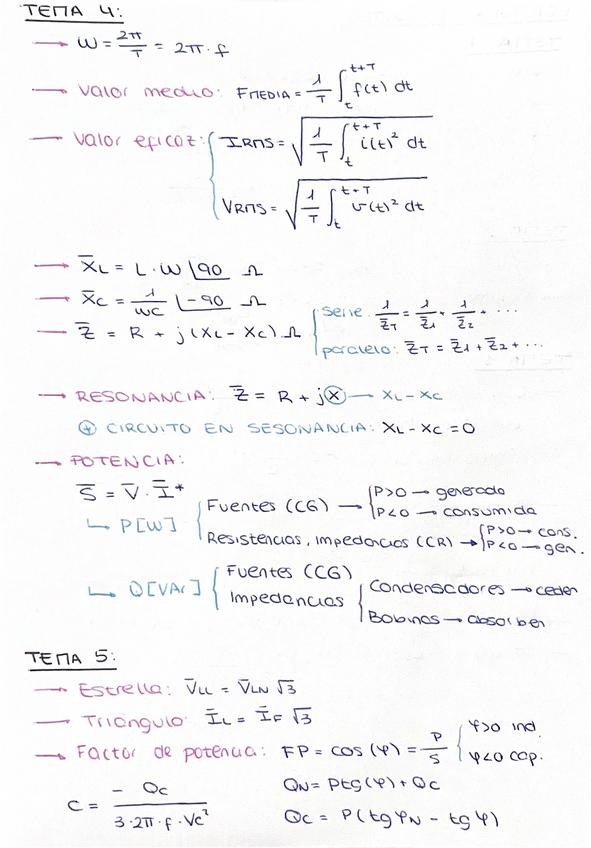 TEMA 4:
→ W = 2π/T = 2π·f
→ Valor medio: FMEDIA = 1/T ∫_t^{t+T} f(t) dt
→ Valor eficaz: { IRMS = √(1/T ∫_t^{t+T} i(t)² dt)
VRMS = √(1/T ∫_t^{t+T} v(t)² dt)
→ X̄L = L·W ∠90 Ω
→ X̄C = 1/WC ∠-90 Ω
→ Z̄ = R + j(XL - XC) Ω { Serie: 1/Z̄T = 1/Z̄1 + 1/Z̄2 + ...
paralelo: Z̄T = Z̄1 + Z̄2 + ...
→ RESONANCIA: Z̄ = R + jⓍ → XL - XC
⊕ CIRCUITO EN SESONANCIA: XL - XC = 0
→ POTENCIA:
S̄ = V̄·Ī*
↳ P[W] { Fuentes (CG) → { P>0 → generada
P<0 → consumida
Resistencias, impedancias (CR) → { P>0 → cons.
P<0 → gen.
↳ Q[VAr] { Fuentes (CG)
Impedancias { Condensadores → ceden
Bobinas → absorben
TEMA 5:
→ Estrella: V̄LL = V̄LN √3
→ Triángulo: ĪL = ĪF √3
→ Factor de potencia: FP = cos(φ) = P/S { φ>0 ind.
φ<0 cap.
C = - Qc / 3·2π·f·Vc²
QN = Ptg(φ) + Qc
Qc = P(tgφN - tgφ)